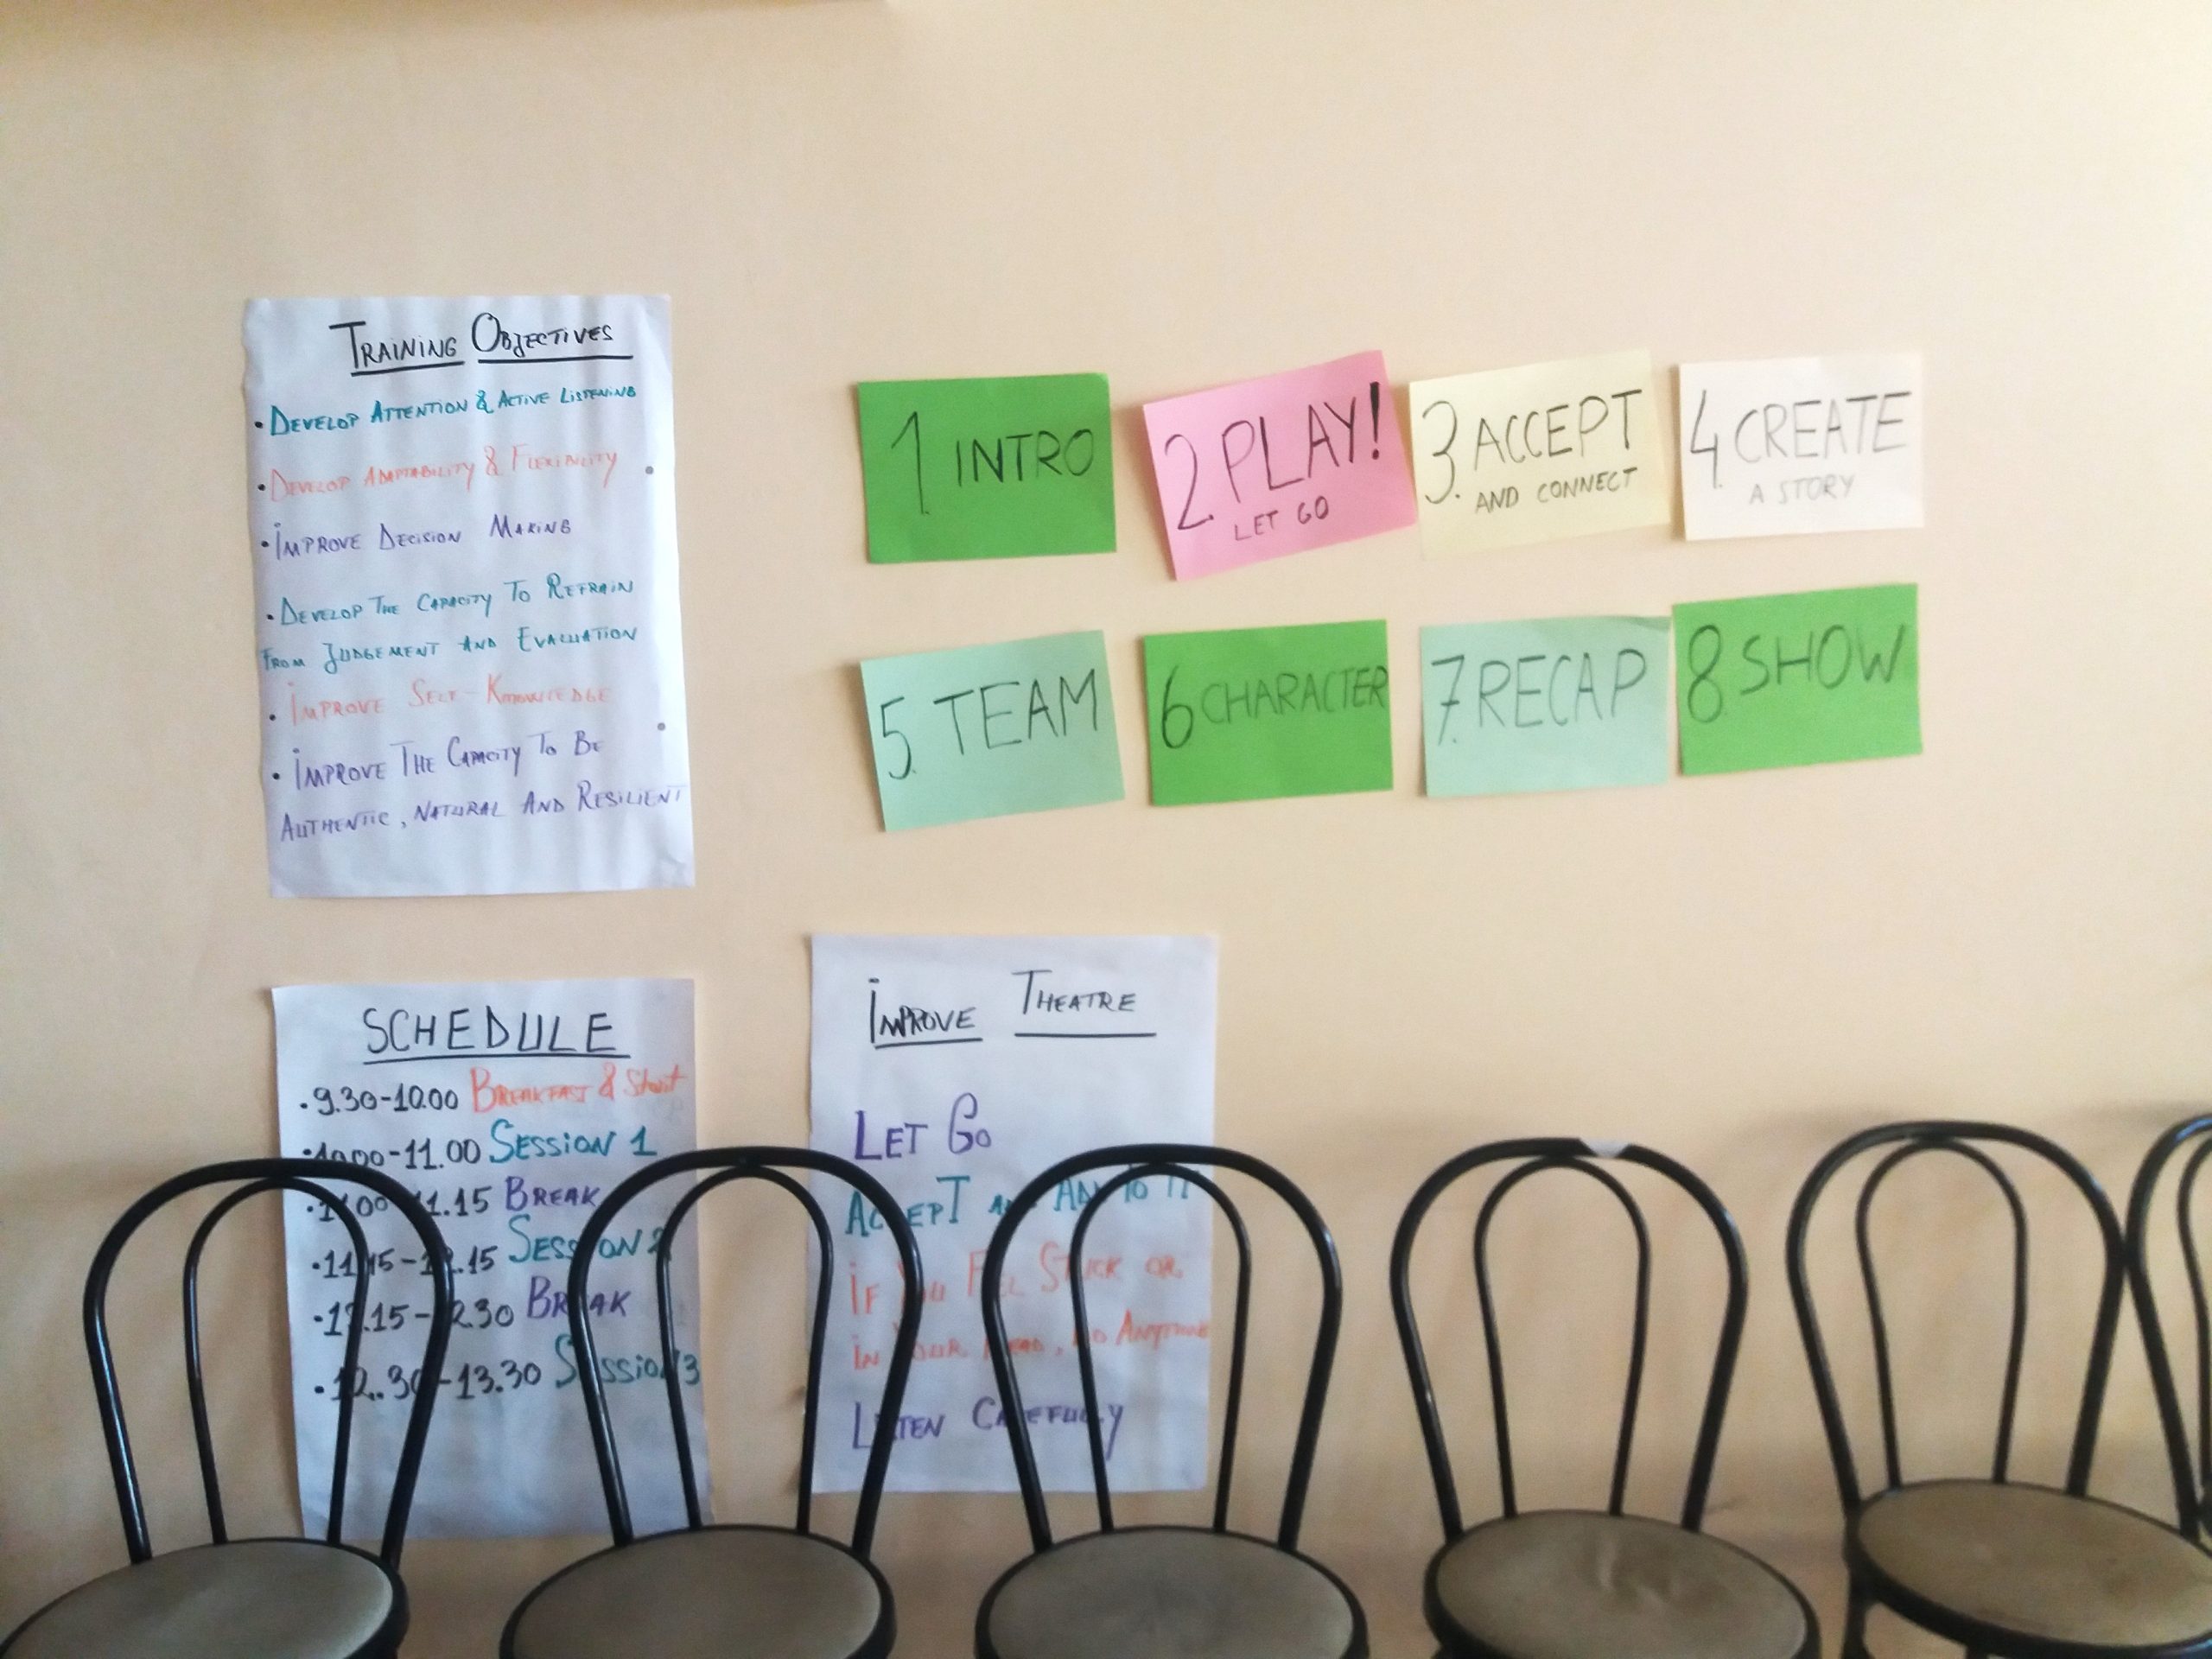 TRAINING OBJECTIVES
• DEVELOP ATTENTION & ACTIVE LISTENING
• DEVELOP ADAPTABILITY & FLEXIBILITY
• IMPROVE DECISION MAKING
• DEVELOP THE CAPACITY TO REFRAIN
FROM JUDGEMENT AND EVALUATION
• IMPROVE SELF-KNOWLEDGE
• IMPROVE THE CAPACITY TO BE
AUTHENTIC, NATURAL AND RESILIENT
1 INTRO
2 PLAY!
LET GO
3. ACCEPT
AND CONNECT
4. CREATE
A STORY
5. TEAM
6 CHARACTER
7. RECAP
8 SHOW
SCHEDULE
• 9.30-10.00 BREAKFAST & Start
• 10.00-11.00 SESSION 1
• 11.00-11.15 BREAK
• 11.15-12.15 SESSION 2
• 12.15-12.30 BREAK
• 12.30-13.30 SESSION 3
IMPROVE THEATRE
LET GO
ACCEPT AND ADD TO IT
IF YOU FEEL STUCK OR
IN YOUR HEAD, DO ANYTHING
LISTEN CAREFULLY